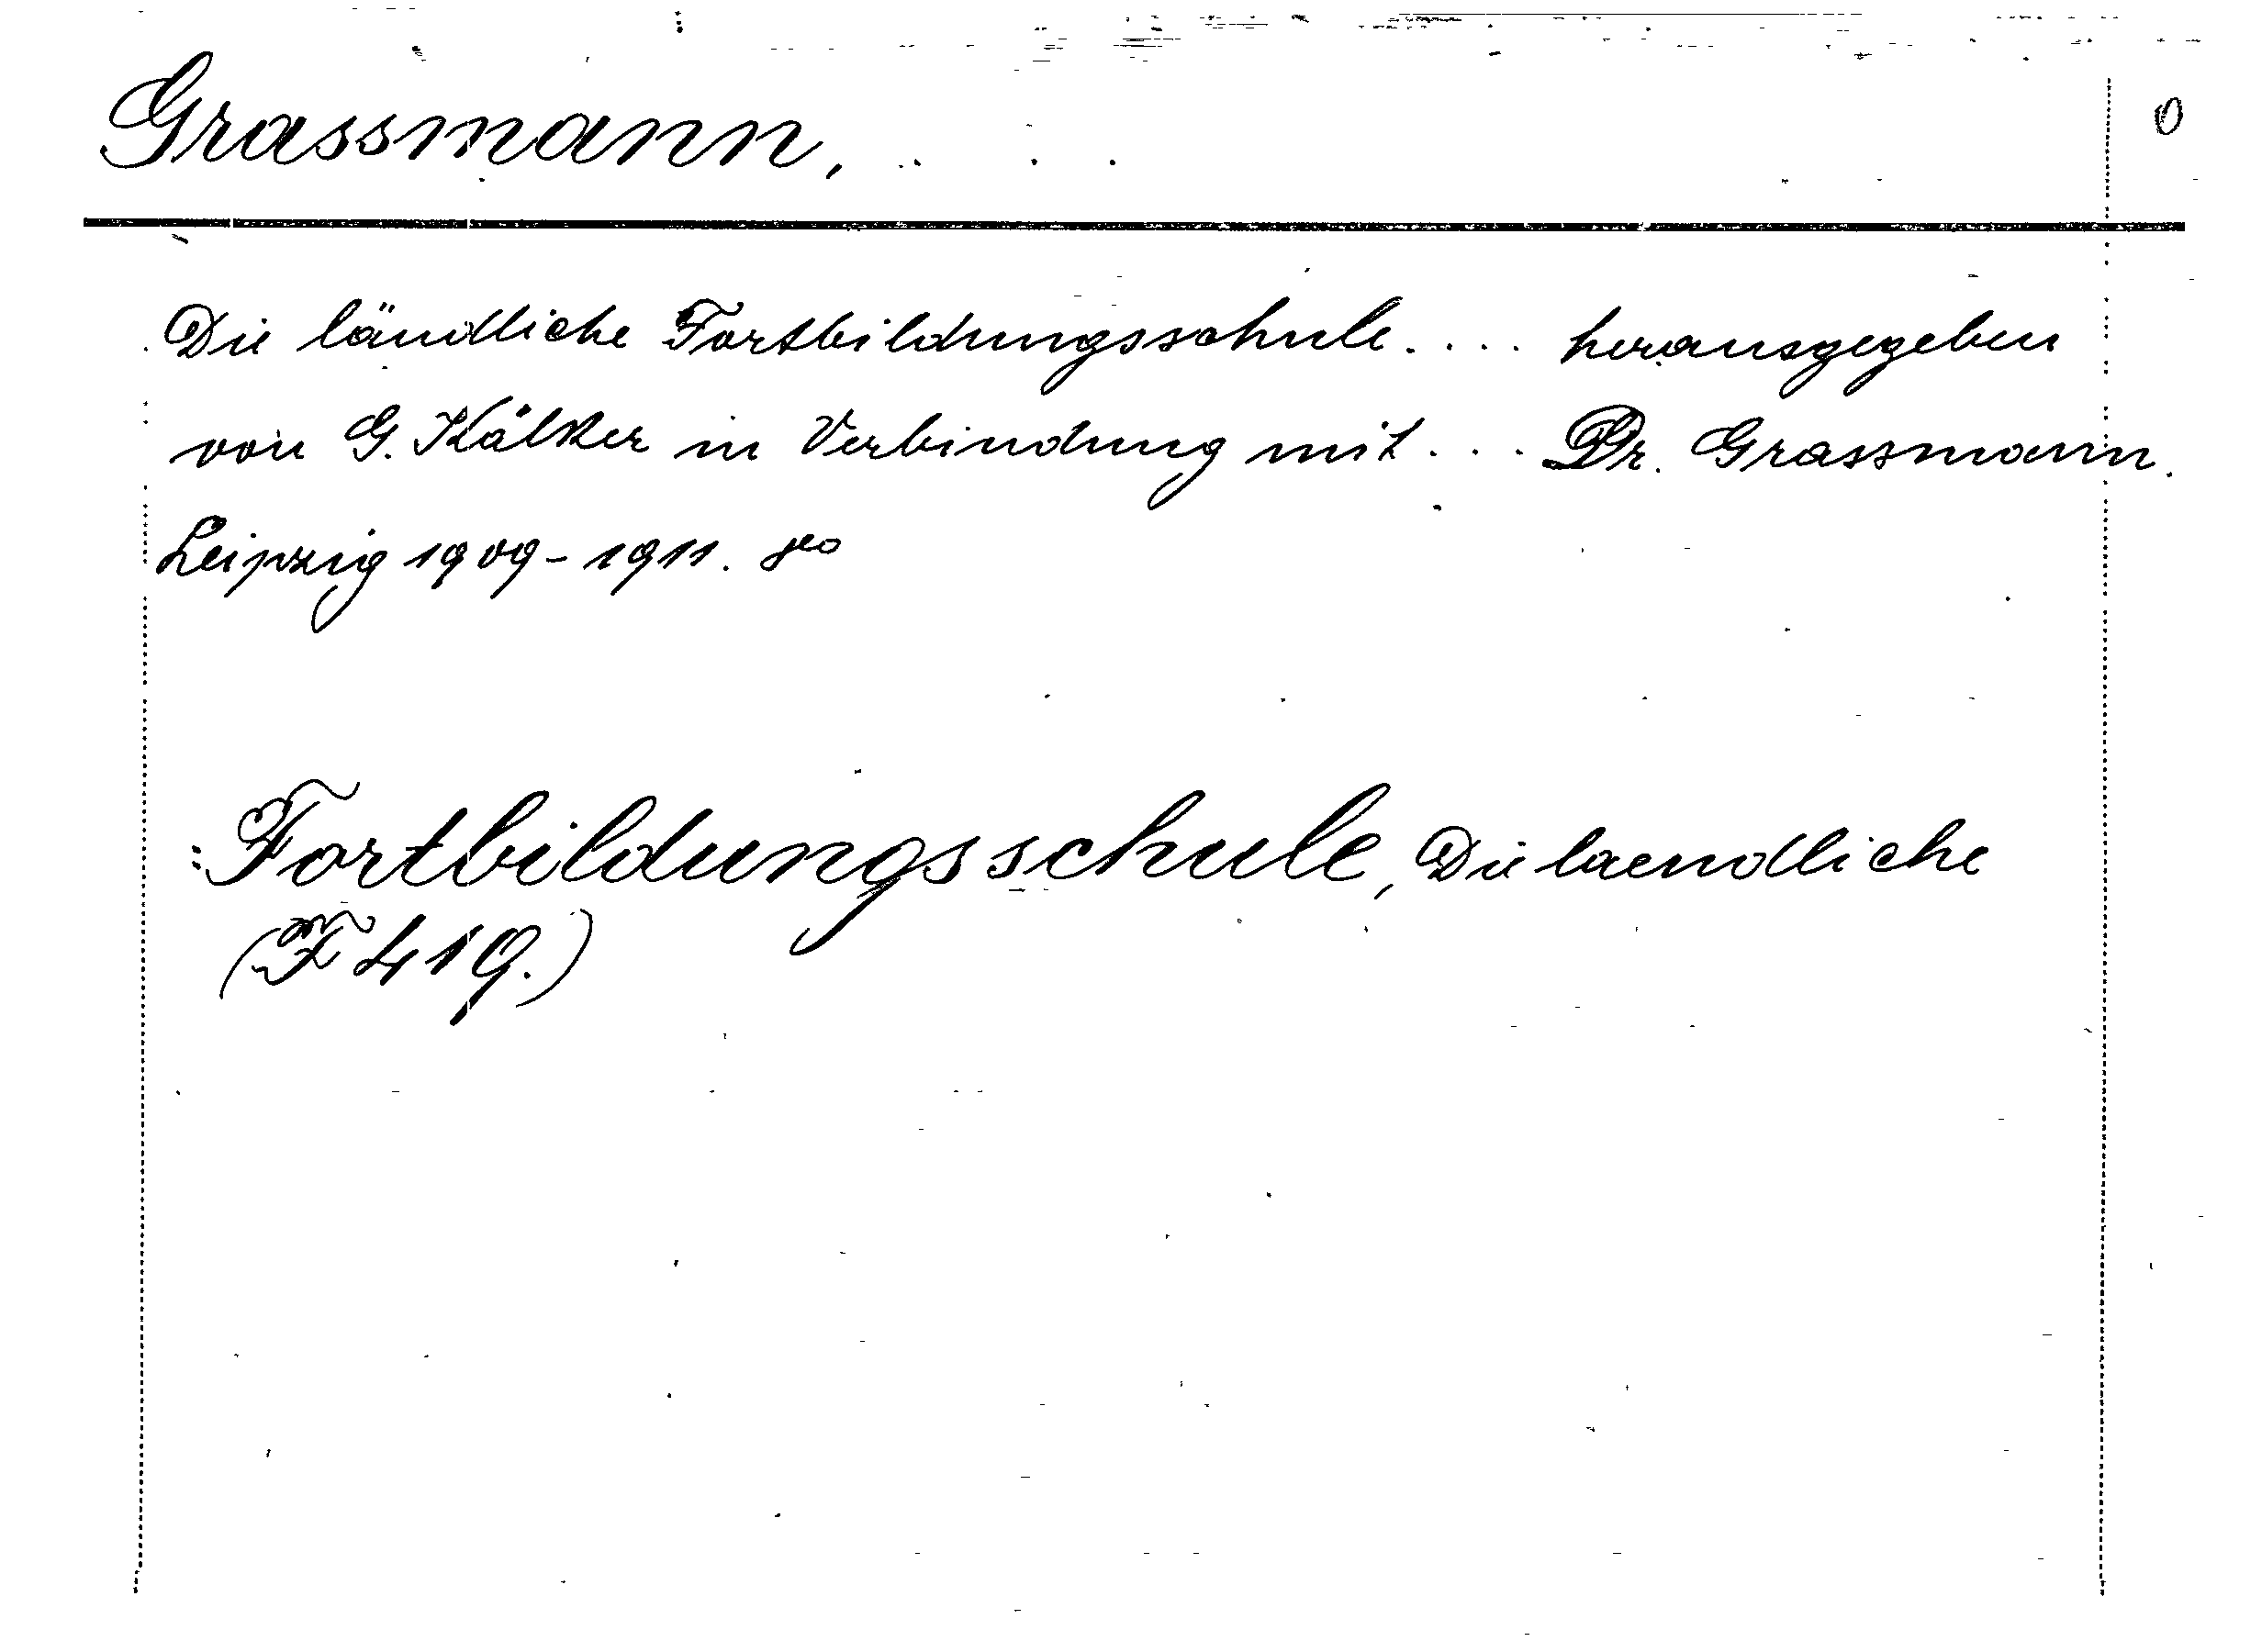 Grassmann,
0
Die ländliche Fortbildungsschule.... herausgegeben
von G. Kälker in Verbindung mit... Dr. Grassmann.
Leipzig 1909-1911. 8o
:Fortbildungsschule, Die laendliche
(F 419.)